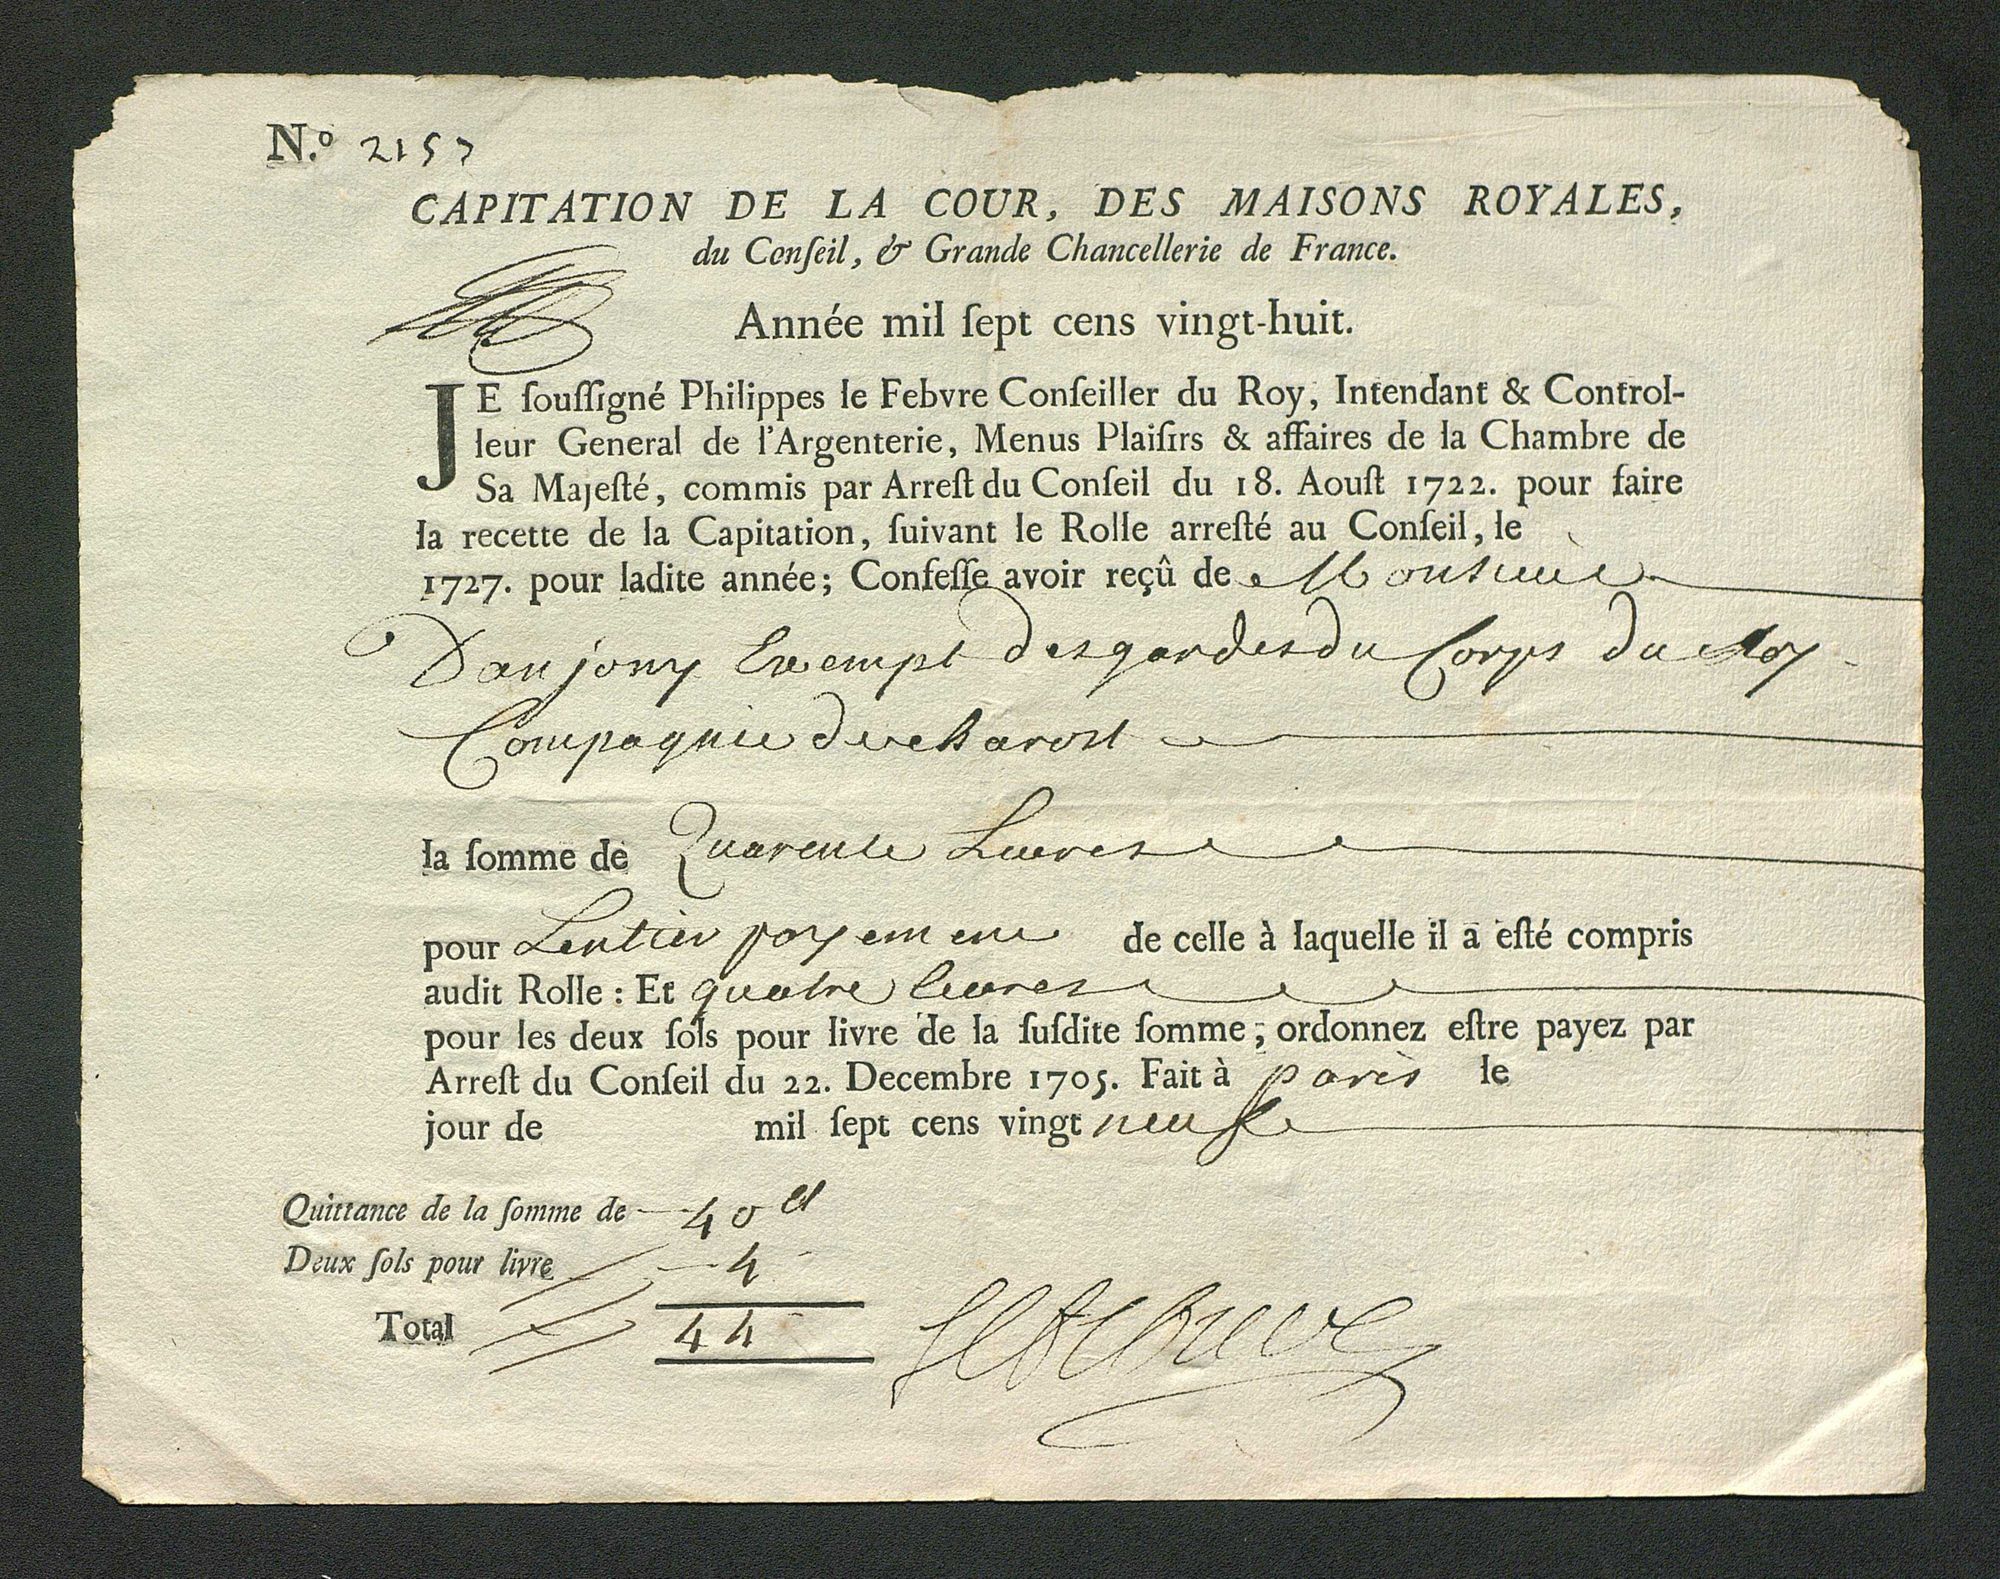 N.º 2157
CAPITATION DE LA COUR, DES MAISONS ROYALES,
du Conſeil, & Grande Chancellerie de France.
Année mil ſept cens vingt-huit.
JE ſouſſigné Philippes le Febvre Conſeiller du Roy, Intendant & Control-
leur General de l'Argenterie, Menus Plaiſirs & affaires de la Chambre de
Sa Majeſté, commis par Arreſt du Conſeil du 18. Aouſt 1722. pour faire
la recette de la Capitation, ſuivant le Rolle arreſté au Conſeil, le
1727. pour ladite année; Confeſſe avoir reçû de Monsieur
Danjony Exempt des gardes du Corps du Roy
Compagnie de charost
la ſomme de Quarente Livres
pour Lentier payement de celle à laquelle il a eſté compris
audit Rolle : Et quatre livres
pour les deux ſols pour livre de la ſuſdite ſomme; ordonnez eſtre payez par
Arreſt du Conſeil du 22. Decembre 1705. Fait à paris le
jour de mil ſept cens vingt neuf
Quittance de la ſomme de 40 ll
Deux ſols pour livre 4
Total 44
lefebvre